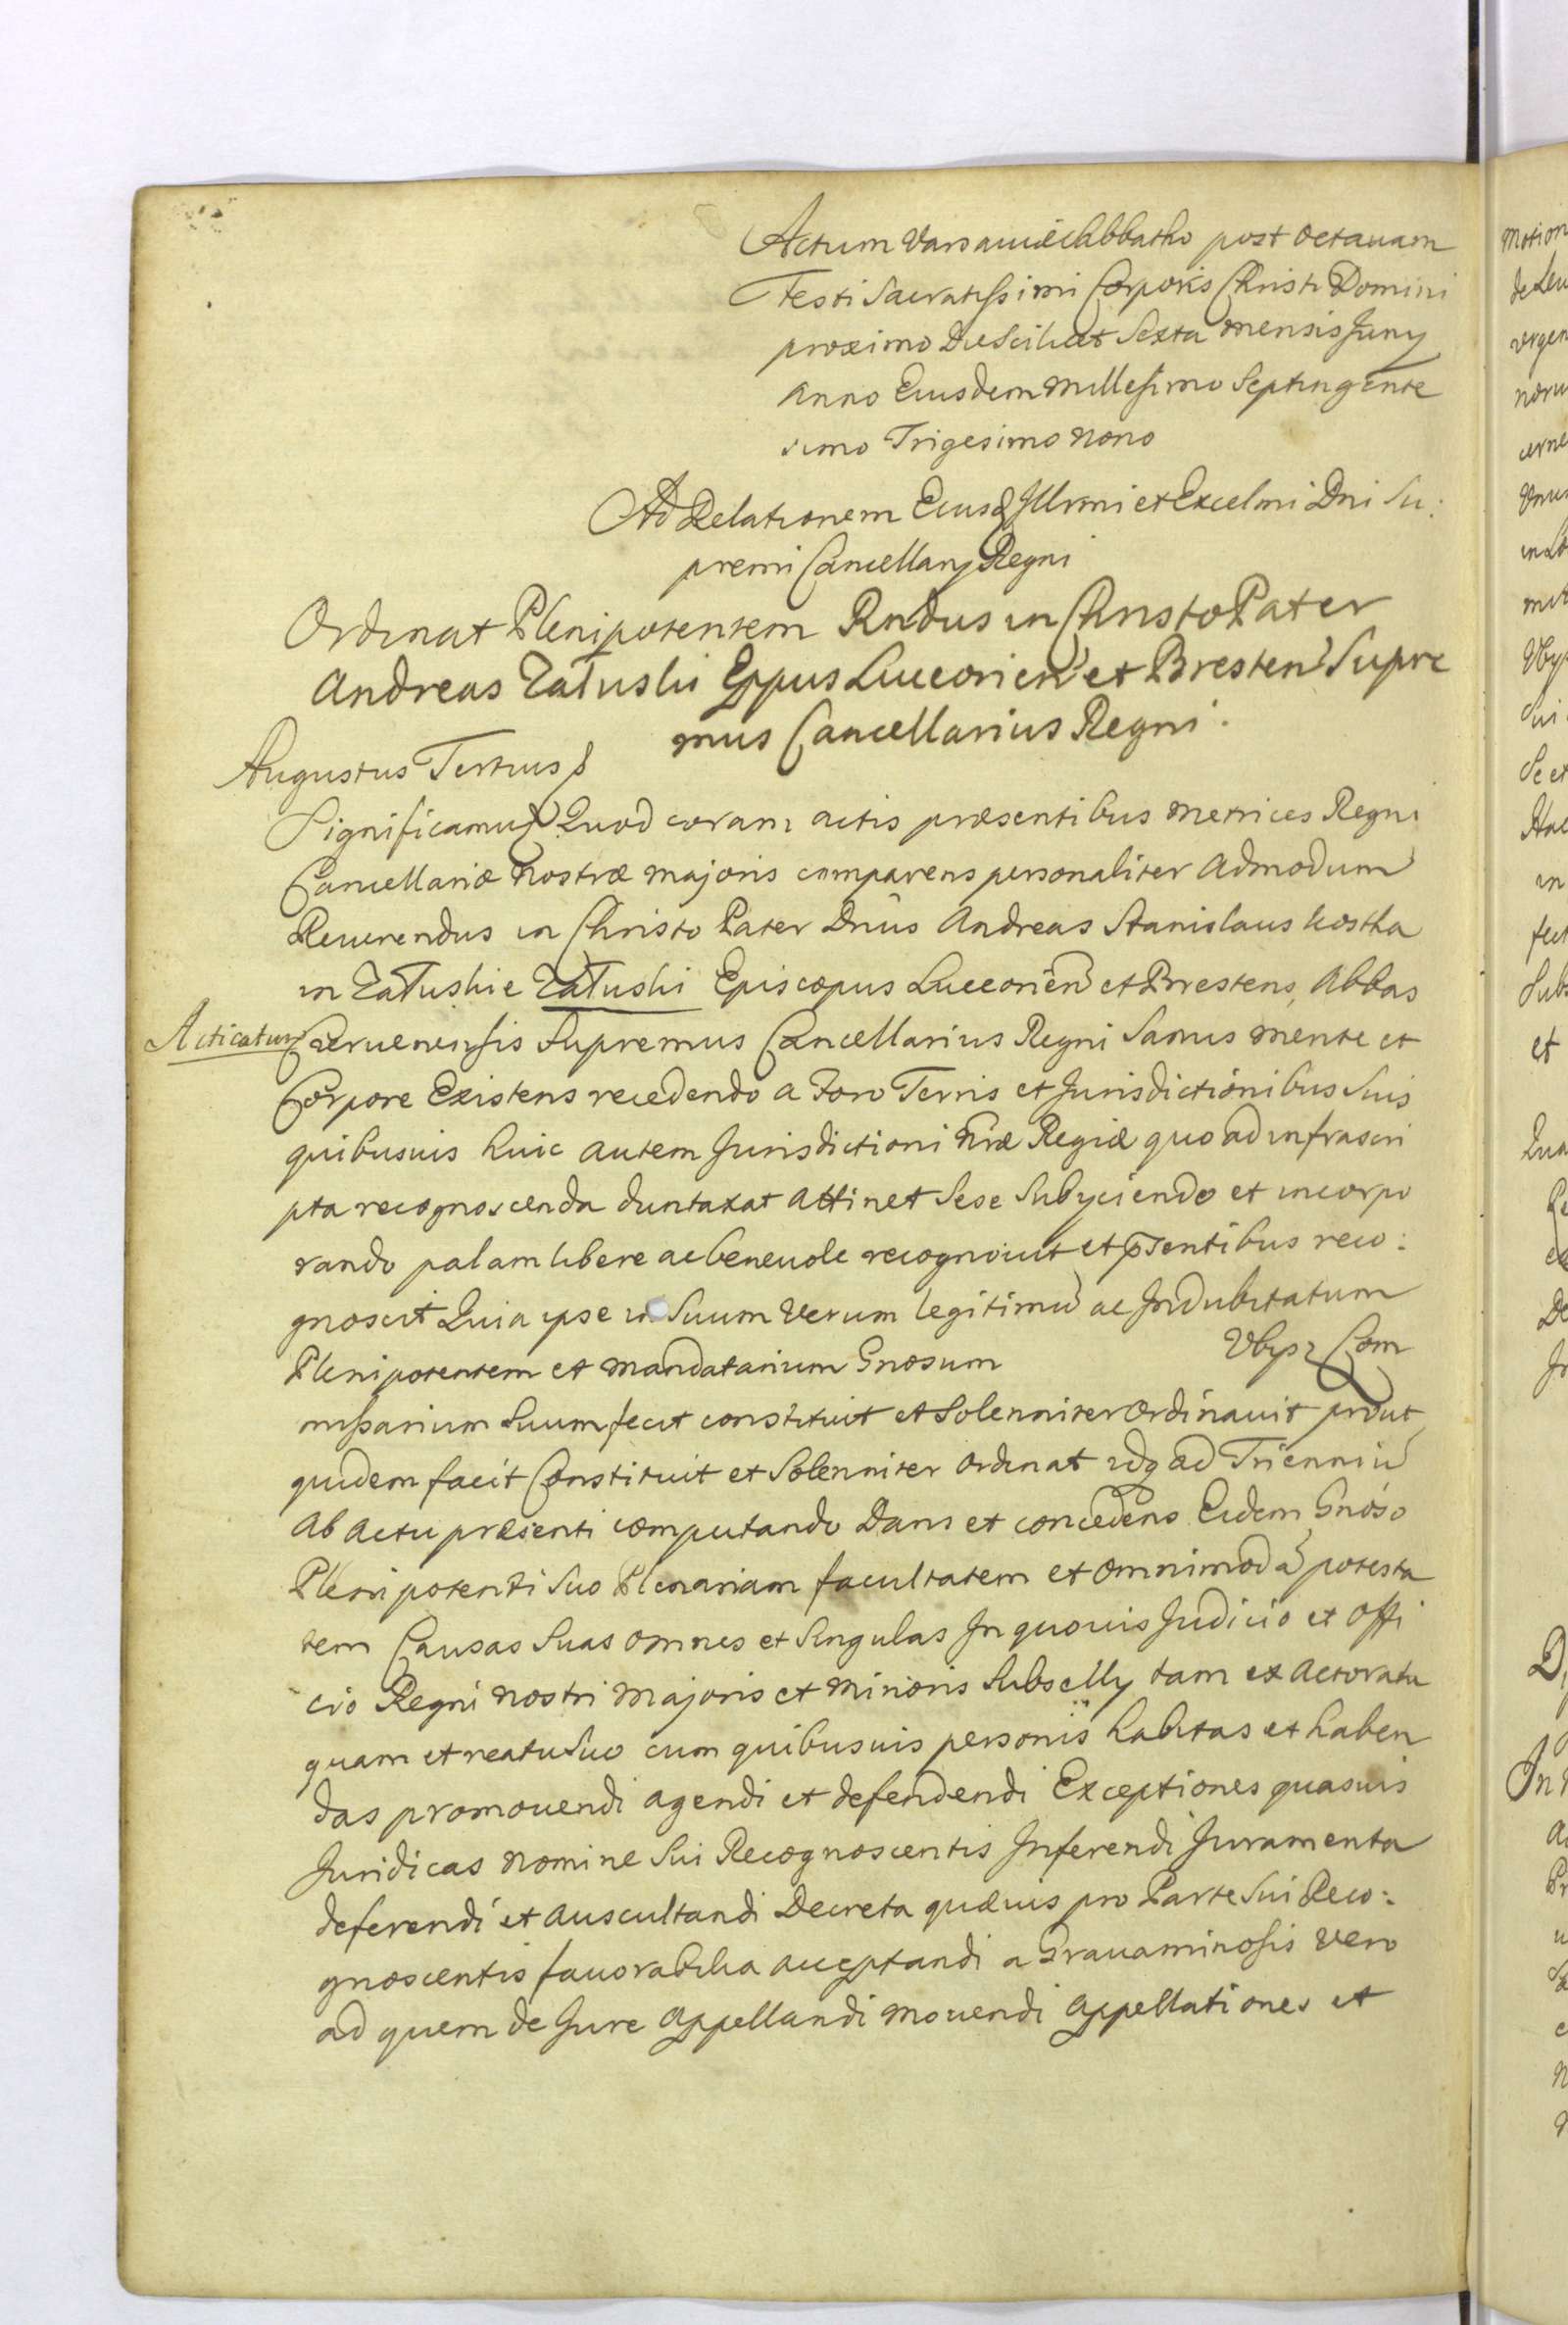 Actum Varsaviae Sabbatho post octavam
Festi Sacratissimi Corporis Christi Domini
proximo Die Scilicet Sexta mensis Juny
Anno Eiusdem Millesimo Septingente
simo Trigesimo nono
Ad Relationem Eiusd Illrmi et Excelmi Dni Su:
premi Cancellarij Regni
Ordinat Plenipotentem Rndus in Christo Pater
Andreas Załuski Eppus Luceorien et Bresten Supre
mus Cancellarius Regni.
Augustus Tertius
Significamus Quod coram actis præsentibus Metrices Regni
Cancellariæ Nostræ majoris comparens personaliter Admodum
Reverendus in Christo Pater Dnus Andreas Stanislaus Kostka
in Załuskie Załuski Episcopus Luceorien et Brestens, Abbas
Acticatur Czervenensis Supremus Cancellarius Regni Sanus mente et
Corpore Existens recedendo a Foro Terris et Jurisdictionibus Suis
quibusvis huic autem Jurisdictioni Nræ Regiæ quo ad infrascri
pta recognoscenda duntaxat Attinet Sese Subyciendo et incorpo
rando palam libere ac benevole recognovit et pr̄sentibus reco:
gnoscit Quia ipse in Suum Verum legitimū ac Indubitatum
Plenipotentem et Mandatarium Gnosum Vbysz Com
missarium Suum fecit constituit et Solenniter Ordinavit prout
quidem facit Constituit et Solenniter ordinat idq ad Trienniū
Ab actu præsenti computando Dans et concedens Eidem Gnoso
Plenipotenti Suo Plenariam facultatem et omnimodā potesta
tem Causas Suas omnes et Singulas In quovis Judicio et Offi
cio Regni Nostri Majoris et Minoris Subselly tam ex Actoratu
quam et reatu Suo cum quibusvis personis habitas et haben
das promovendi agendi et defendendi Exceptiones quasvis
Juridicas Nomine Sui Recognoscentis Inferendi Juramenta
deferendi et auscultandi Decreta quævis pro Parte Sui Reco:
gnoscentis favorabilia acceptandi a Gravaminosis Vero
ad quem de Jure Appellandi Movendi Appellationes et